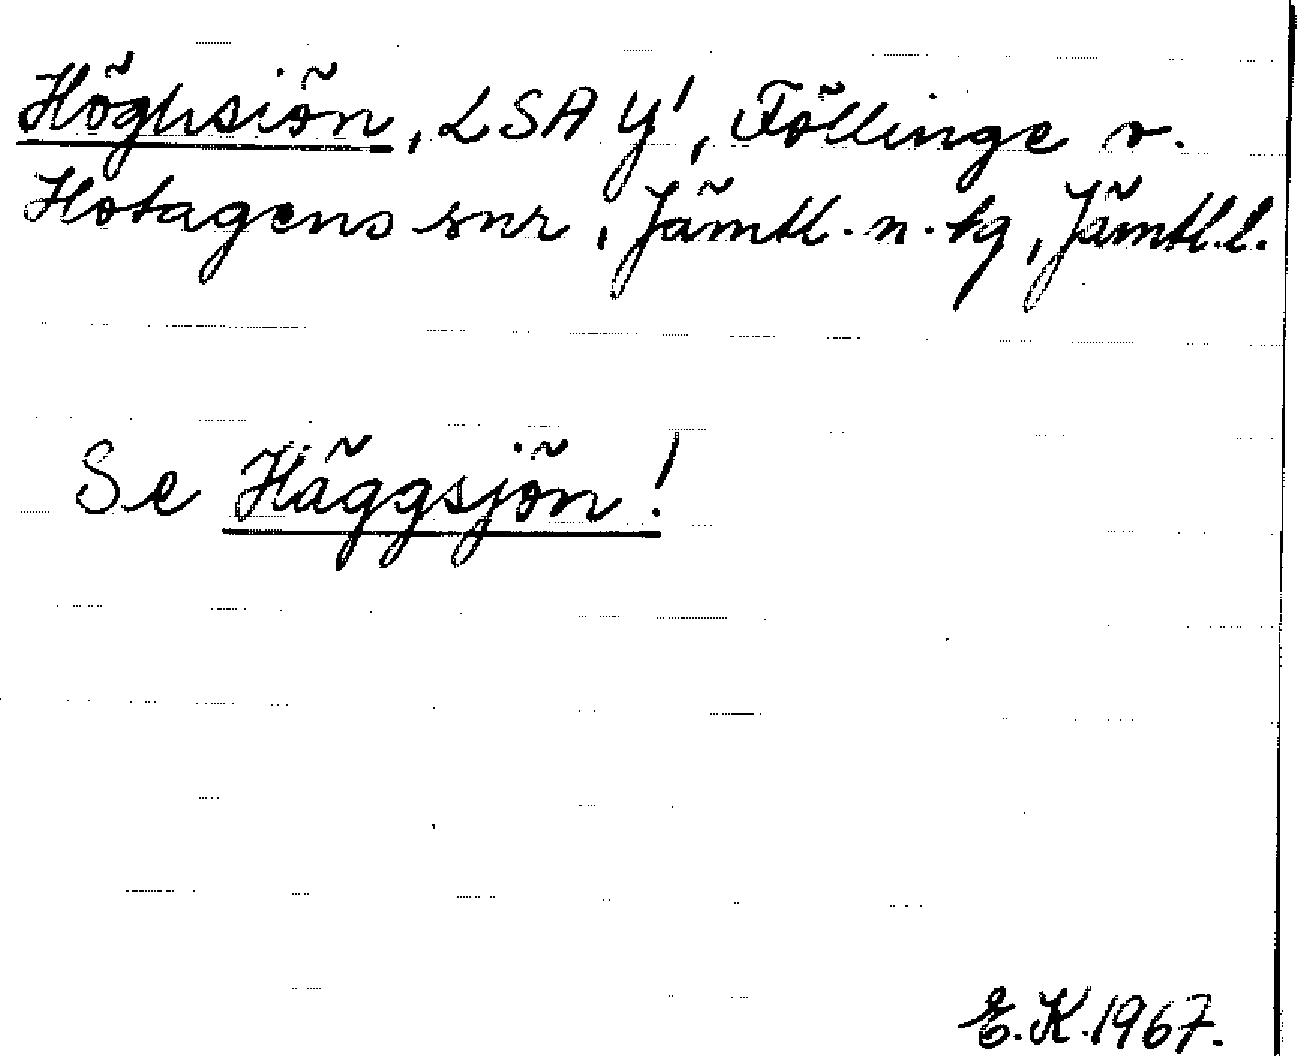 Höghsiön, LSA Y¹, Föllinge o.
Hotagens snr, Jämtl. n. tg, Jämtl. l.
Se Häggsjön!
E.K. 1967.